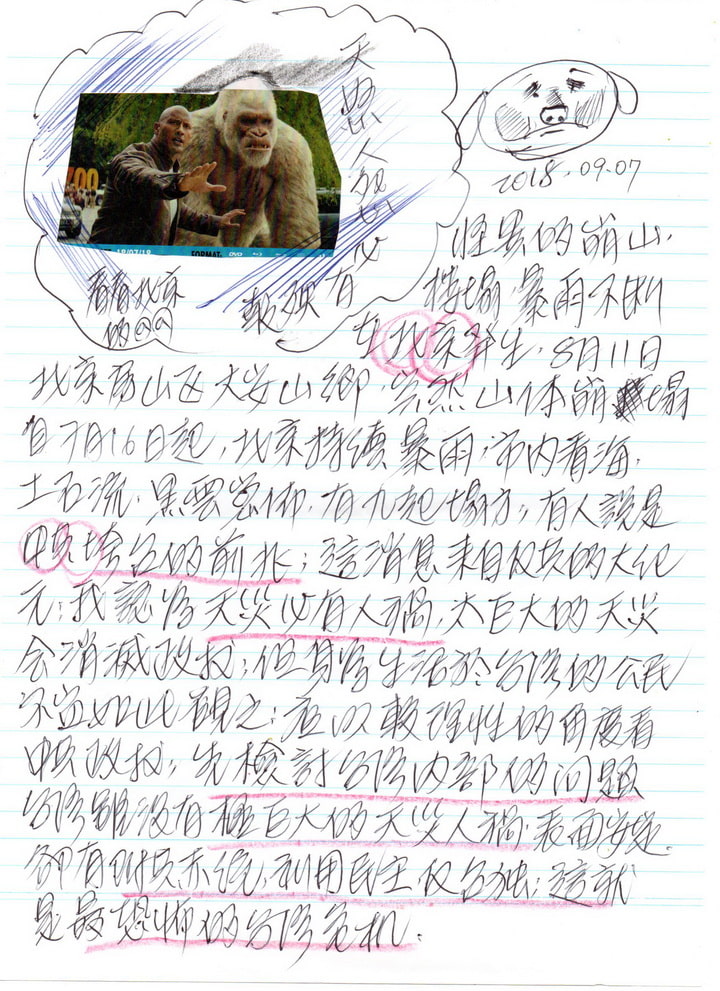 天怒人怨必有
2018.09.07
怪異的崩山,
看看北京
的QQ
塌陷,暴雨不斷
在北京發生,8月11日
北京房山區大安山鄉,突然山体崩塌
自7月16日起,北京持續暴雨,市內看海,
土石流,黑雲密佈,有九起塌方,有人說是
中共垮台的前兆;這消息來自反共的大紀
元;我認為天災必有人禍,太巨大的天災
會消滅政權;但身為生活於台灣的公民
不宜如此觀之;應以較理性的角度看
中共政權,先檢討台灣內部的问題
台灣雖沒有極巨大的天災人禍,表面安定,
卻有附共赤統,利用民主反台独;這就
是最恐怖的台灣危机.